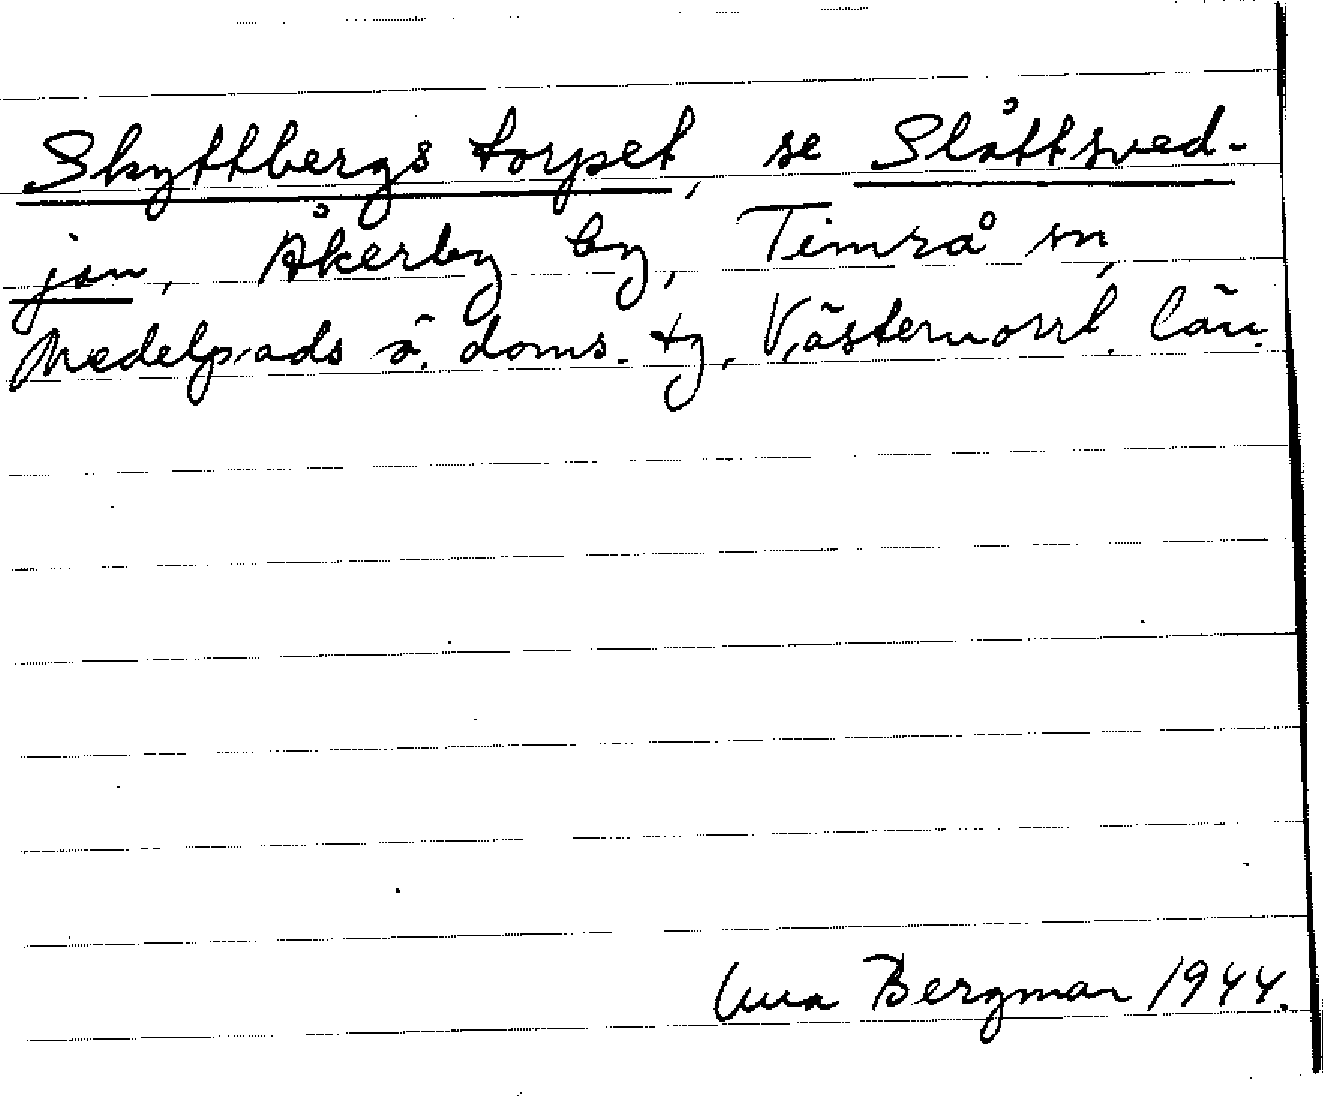 Skyttbergs torpet, se Slåttsved-
jan, Åkerby by, Timrå sn,
Medelpads ö. doms. tg. Västernorrl. län.
Bergman 1944.